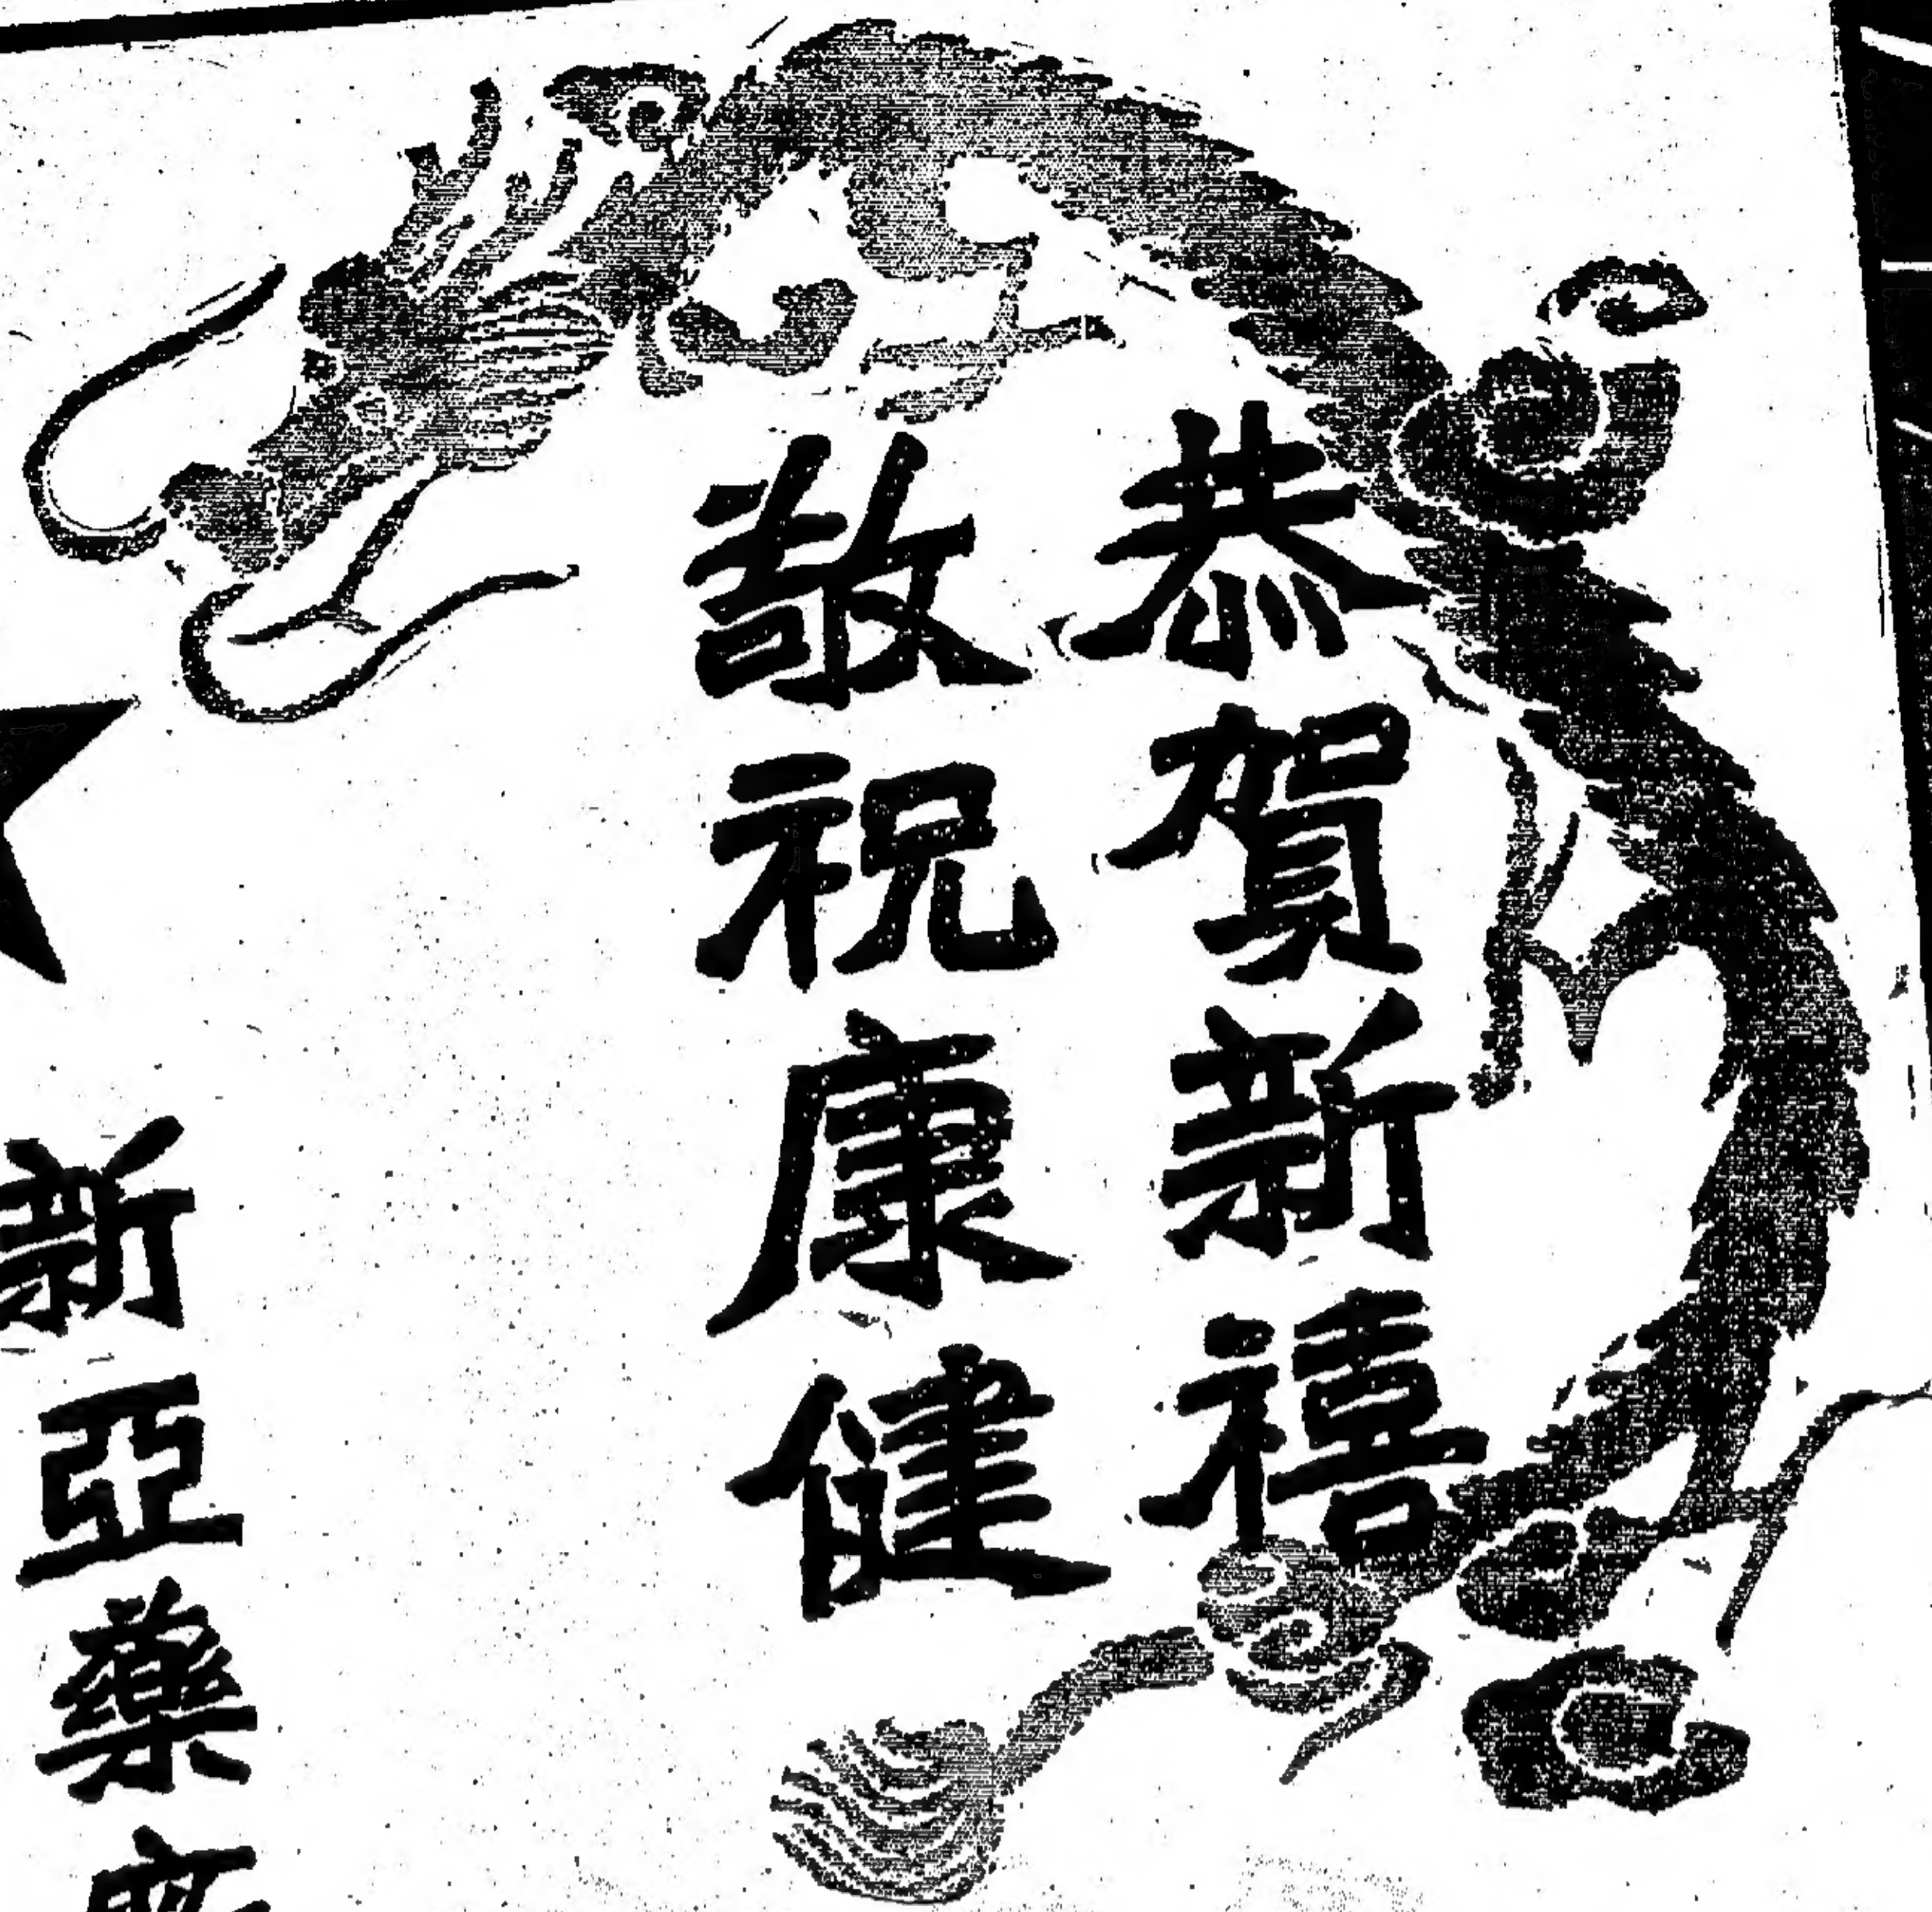 恭賀新禧
敬祝康健
新亞藥